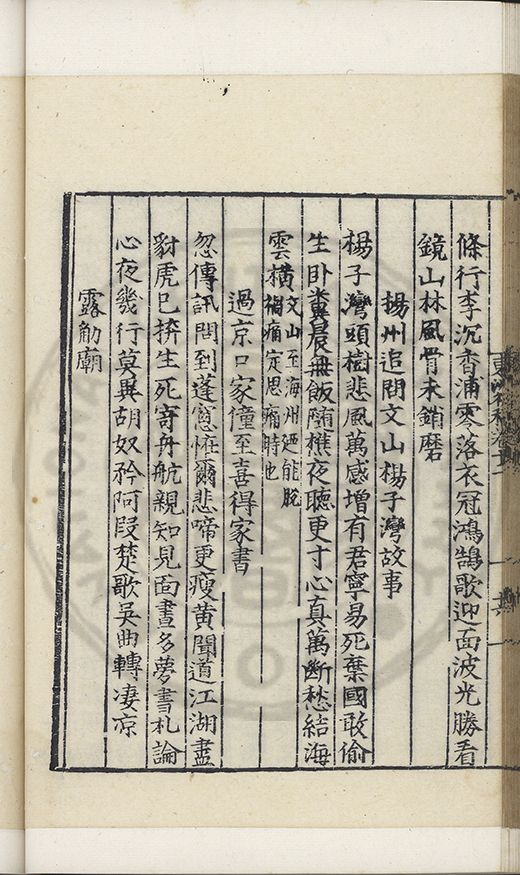 條行李沉香浦零落衣冠鴻鵠歌迎面波光勝看
鏡山林風骨未銷磨
楊州追問文山楊子灣故事
楊子灣頭樹悲風萬感增有君寧易死棄國敢偷
生卧糞晨無飯隨樵夜聽更寸心真萬斷愁結海
雲橫文山至海州廼能脫
禍痛定思痛時也
過京口家僮至喜得家書
忽傳訊問到蓬窓恠爾悲啼更瘦黄聞道江湖盡
豺虎已拚生死寄舟航親知見面晝多夢書札論
心夜幾行莫異胡奴矜阿段楚歌吳曲轉淒凉
露觔廟